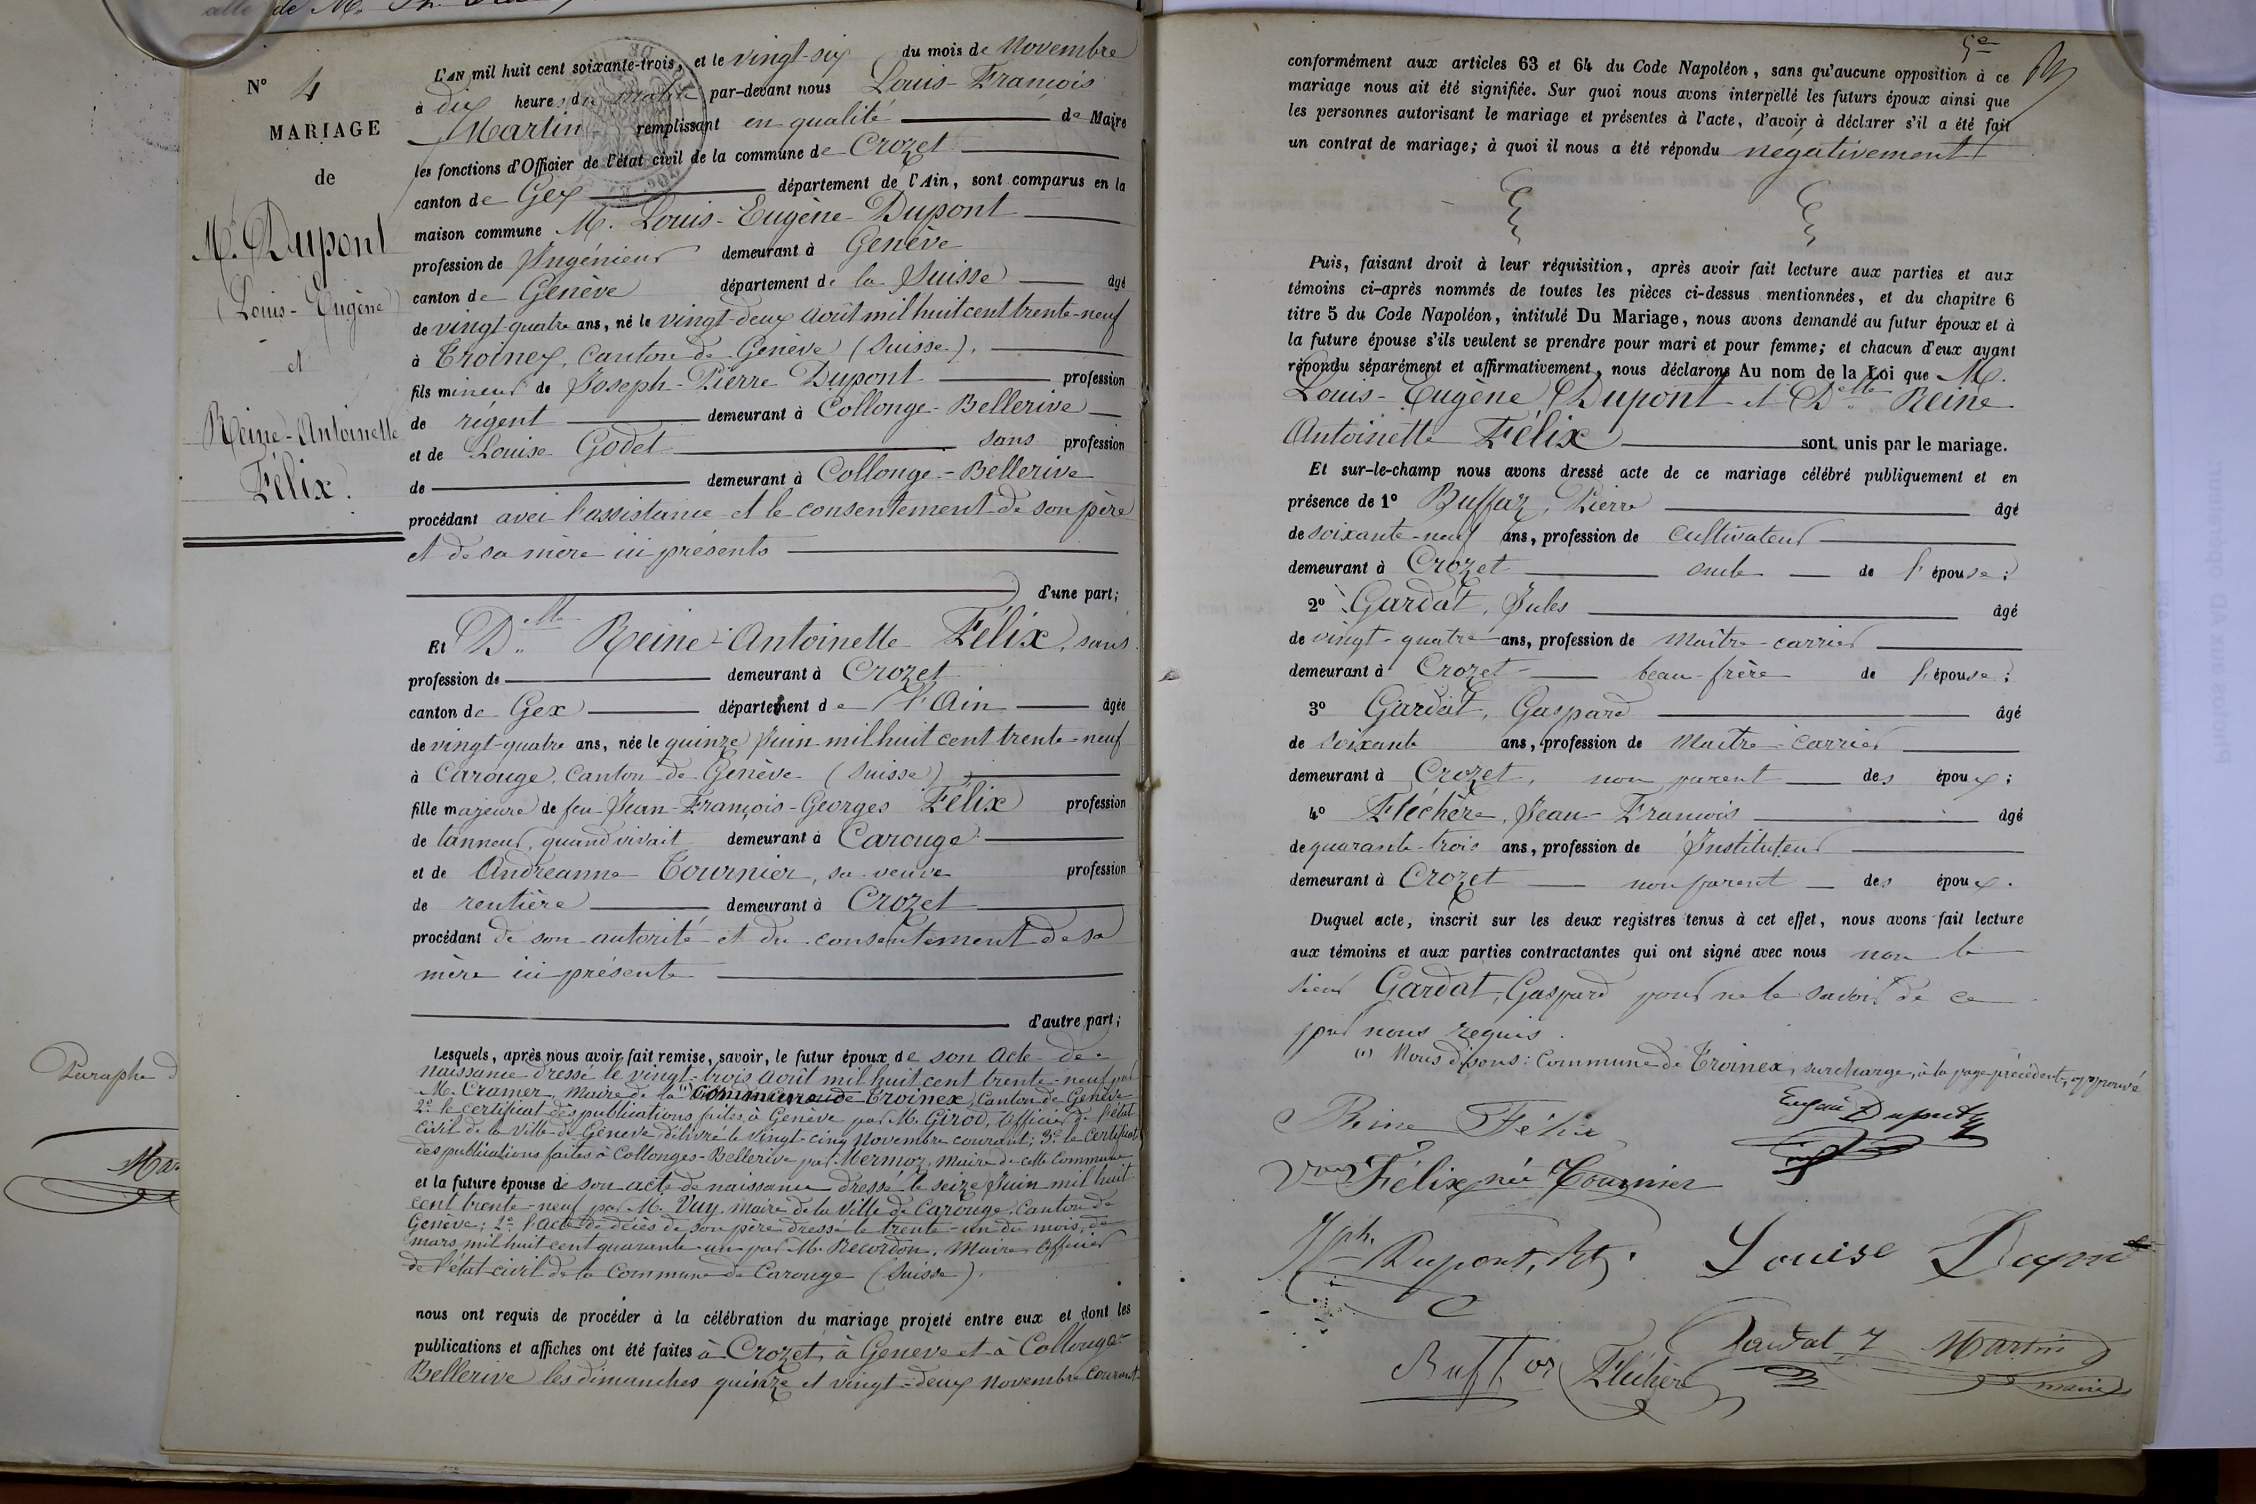 N° 4
MARIAGE
de
Mr. Dupont
(Louis-Eugène)
et
Reine-Antoinette
Félix.
L'AN mil huit cent soixante-trois, et le vingt-six du mois de Novembre
à dix heures du matin par-devant nous Louis-François
Martin remplissant en qualité de Maire
les fonctions d'Officier de l'état civil de la commune de Crozet
canton de Gex département de l'Ain, sont comparus en la
maison commune M. Louis-Eugène Dupont
profession de Ingénieur demeurant à Genève
canton de Genève département de la Suisse âgé
de vingt-quatre ans, né le vingt-deux Août mil huit cent trente-neuf
à Troinex, Canton de Genève (Suisse).
fils mineur de Joseph-Pierre Dupont profession
de régent demeurant à Collonge-Bellerive
et de Louise Godet sans profession
de demeurant à Collonge-Bellerive
procédant avec l'assistance et le consentement de son père
et de sa mère ici présents
d'une part;
Et Delle Reine-Antoinette Félix, sans
profession de demeurant à Crozet
canton de Gex département de l'Ain âgée
de vingt-quatre ans, née le quinze Juin mil huit cent trente-neuf
à Carouge, Canton de Genève (Suisse)
fille majeure de feu Jean-François-Georges Félix profession
de tanneur, quand vivait demeurant à Carouge
et de Andréanne Tournier, sa veuve profession
de rentière demeurant à Crozet
procédant de son autorité et du consentement de sa
mère ici présente
d'autre part;
Lesquels, après nous avoir fait remise, savoir, le futur époux de son acte de
naissance dressé le vingt-trois Août mil huit cent trente-neuf par
M. Cramer, Maire de la (1) Commune de Troinex, Canton de Genève
2° le certificat des publications faites à Genève par M. Girod, Officier de l'état
civil de la Ville de Genève, délivré le vingt-cinq Novembre courant; 3° le certificat
des publications faites à Collonges-Bellerive par Mermoz, Maire de cette Commune
et la future épouse de son acte de naissance dressé le seize Juin mil huit
cent trente-neuf par M. Vuy, maire de la Ville de Carouge, Canton de
Genève; 2° l'acte de décès de son père dressé le trente-un du mois de
mars mil huit cent quarante-un par M. Recordon, Maire Officier
de l'état-civil de la Commune de Carouge (Suisse).
nous ont requis de procéder à la célébration du mariage projeté entre eux et dont les
publications et affiches ont été faites à Crozet, à Genève et à Collonge-
Bellerive les dimanches quinze et vingt-deux Novembre courant
Paraphe d
Mar
5e
conformément aux articles 63 et 64 du Code Napoléon, sans qu'aucune opposition à ce
mariage nous ait été signifiée. Sur quoi nous avons interpellé les futurs époux ainsi que
les personnes autorisant le mariage et présentes à l'acte, d'avoir à déclarer s'il a été fait
un contrat de mariage; à quoi il nous a été répondu négativement
Puis, faisant droit à leur réquisition, après avoir fait lecture aux parties et aux
témoins ci-après nommés de toutes les pièces ci-dessus mentionnées, et du chapitre 6
titre 5 du Code Napoléon, intitulé Du Mariage, nous avons demandé au futur époux et à
la future épouse s'ils veulent se prendre pour mari et pour femme; et chacun d'eux ayant
répondu séparément et affirmativement, nous déclarons Au nom de la Loi que M.
Louis-Eugène Dupont et Delle Reine
Antoinette Félix sont unis par le mariage.
Et sur-le-champ nous avons dressé acte de ce mariage célébré publiquement et en
présence de 1° Buffaz, Pierre âgé
de soixante-neuf ans, profession de Cultivateur
demeurant à Crozet oncle de l'épouse;
2° Gardat, Jules âgé
de vingt-quatre ans, profession de Maître-carrier
demeurant à Crozet beau-frère de l'épouse;
3° Gardat, Gaspard âgé
de soixante ans, profession de Maître-Carrier
demeurant à Crozet, non parent des époux;
4° Fléchère, Jean-François âgé
de quarante-trois ans, profession de Instituteur
demeurant à Crozet non parent des époux.
Duquel acte, inscrit sur les deux registres tenus à cet effet, nous avons fait lecture
aux témoins et aux parties contractantes qui ont signé avec nous non le
sieur Gardat, Gaspard pour ne le savoir de ce
par nous requis.
(1) Nous disons: Commune de Troinex, surcharge, à la page précédente, approuvé
Eugène Dupont
Reine Félix
Vve Félix née Tournier
Jph. Dupont, Louise Dupont
Buffaz Fléchère Gardat J Martin
maire